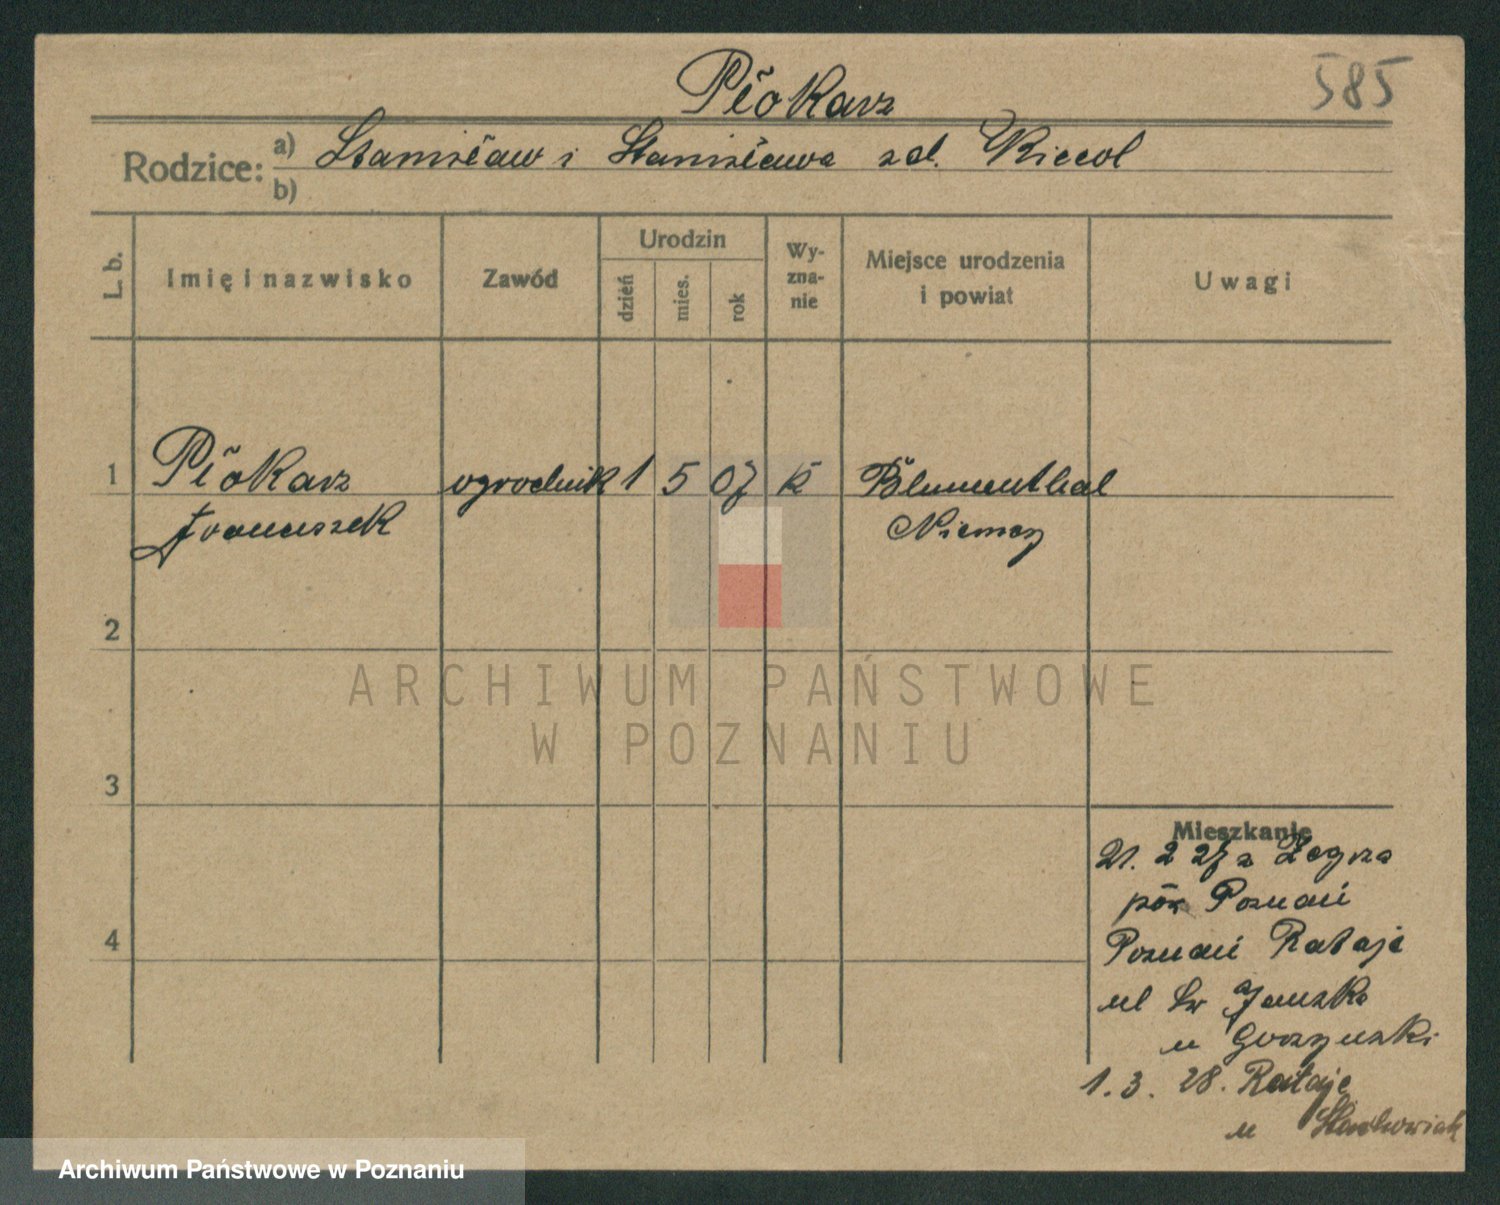 Płokarz
585
Rodzice:
a) Stanisław i Stanisława zd.
b)
L. b.
Imię i nazwisko
Zawód
Urodzin
dzień
mies.
rok
Wy-
zna-
nie
Miejsce urodzenia
i powiat
Uwagi
1 Płokarz ogrodnik 1 5 07 k Blumenthal
Franciszek Niemcy
2
3
4
Mieszkanie
21. 2 27 z Żegrza
pow Poznań
Poznań Rataje
ul Św
u
1. 3. 28. Rataje
u Stachowiak
ARCHIWUM PAŃSTWOWE
W POZNANIU
Archiwum Państwowe w Poznaniu